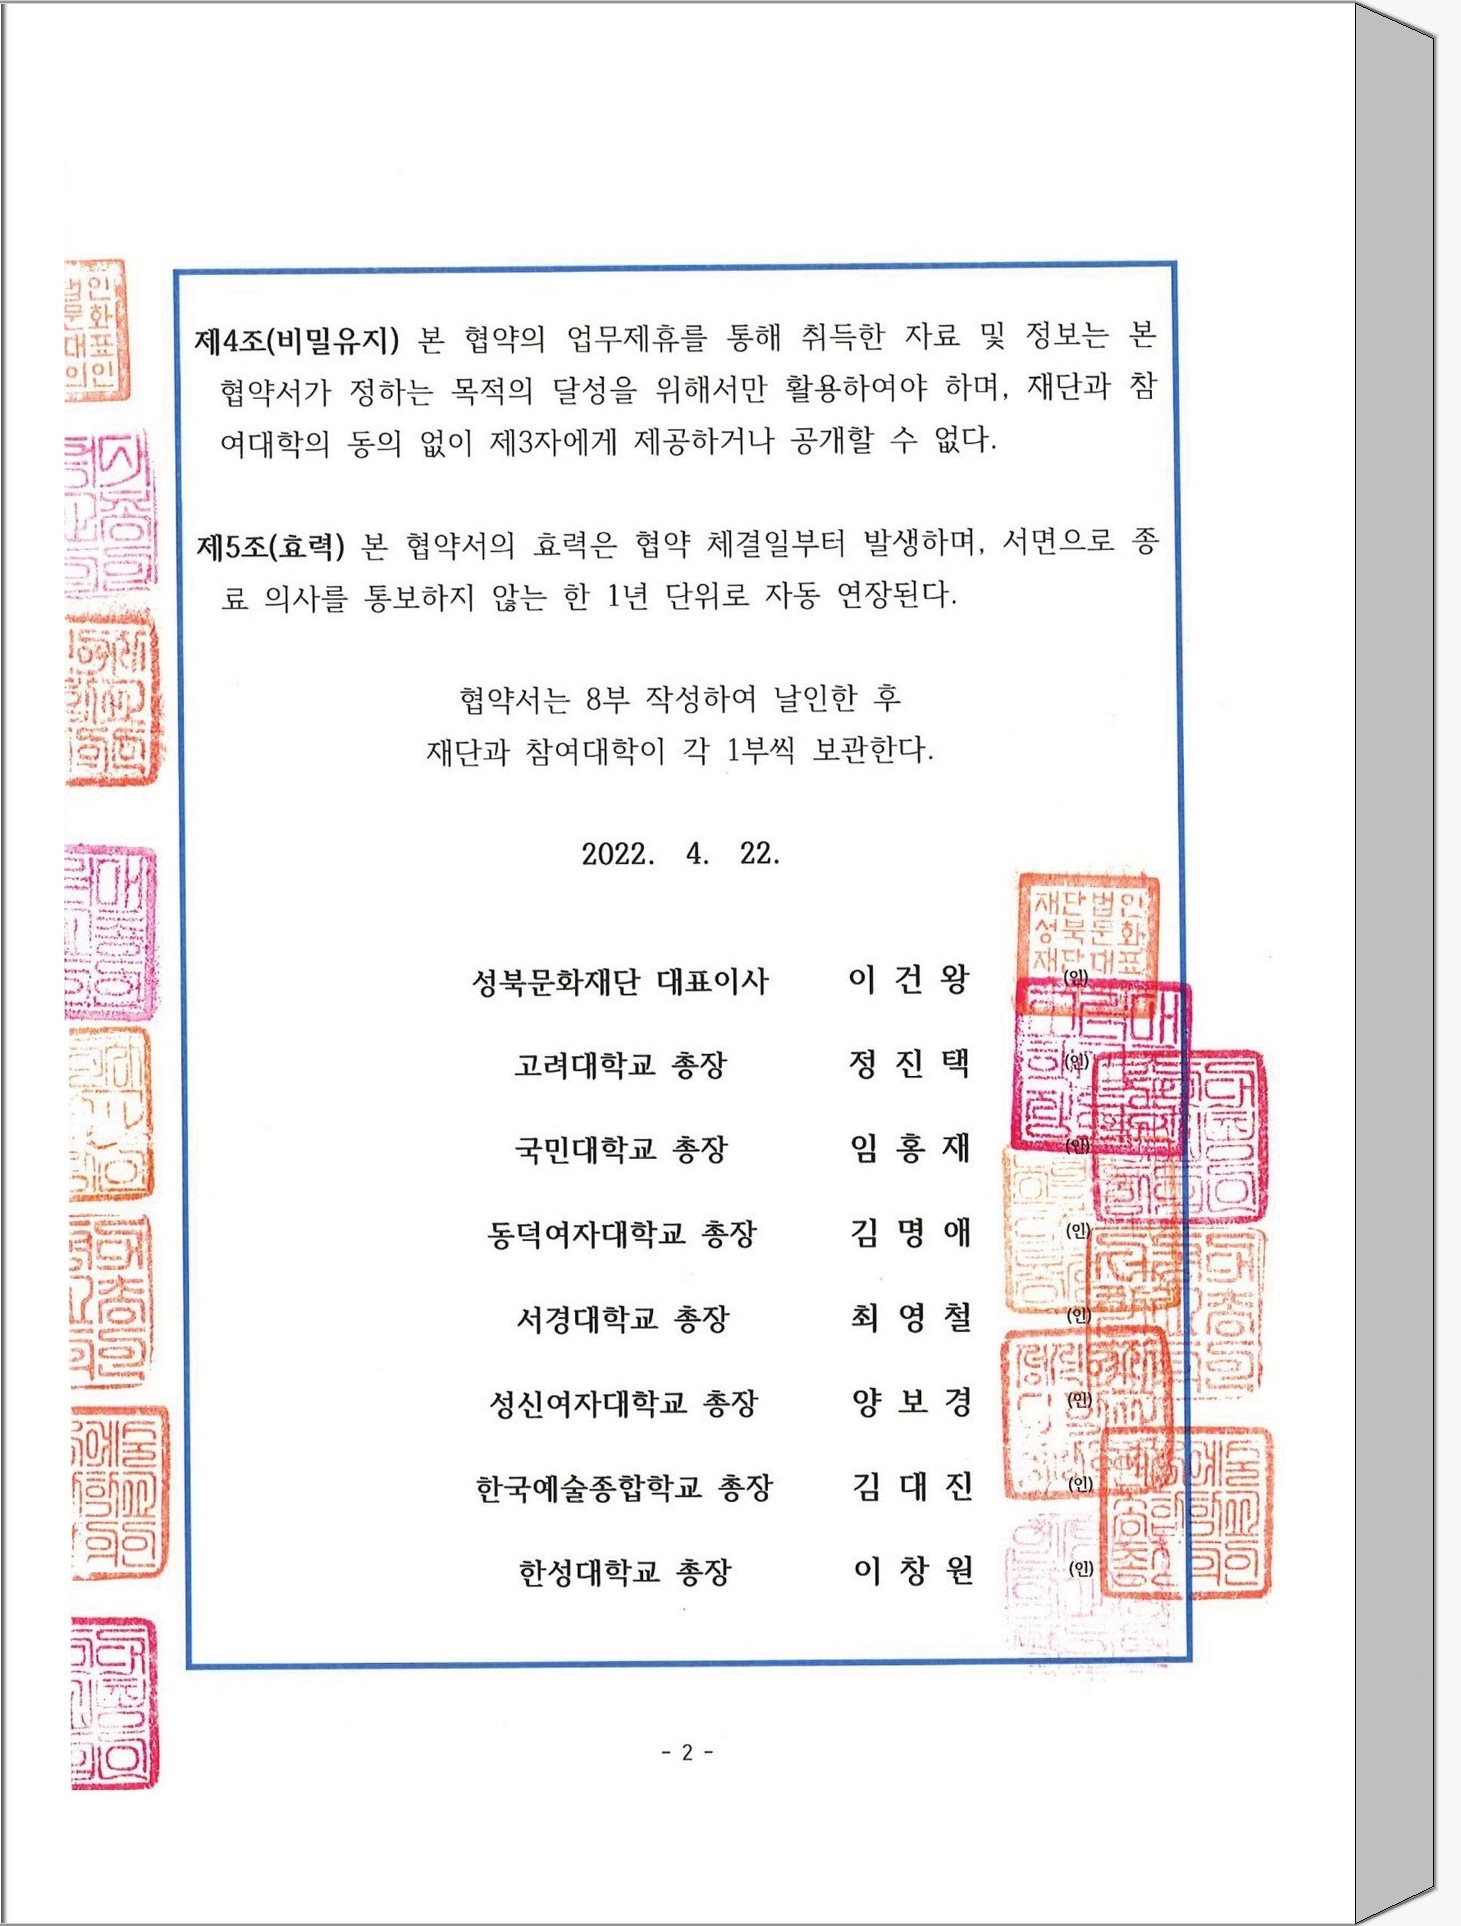 제4조(비밀유지) 본 협약의 업무제휴를 통해 취득한 자료 및 정보는 본
협약서가 정하는 목적의 달성을 위해서만 활용하여야 하며, 재단과 참
여대학의 동의 없이 제3자에게 제공하거나 공개할 수 없다.
제5조(효력) 본 협약서의 효력은 협약 체결일부터 발생하며, 서면으로 종
료 의사를 통보하지 않는 한 1년 단위로 자동 연장된다.
협약서는 8부 작성하여 날인한 후
재단과 참여대학이 각 1부씩 보관한다.
2022. 4. 22.
성북문화재단 대표이사 이 건 왕 (인)
고려대학교 총장 정 진 택 (인)
국민대학교 총장 임 홍 재 (인)
동덕여자대학교 총장 김 명 애 (인)
서경대학교 총장 최 영 철 (인)
성신여자대학교 총장 양 보 경 (인)
한국예술종합학교 총장 김 대 진 (인)
한성대학교 총장 이 창 원 (인)
재단법인
성북문화
재단대표
- 2 -